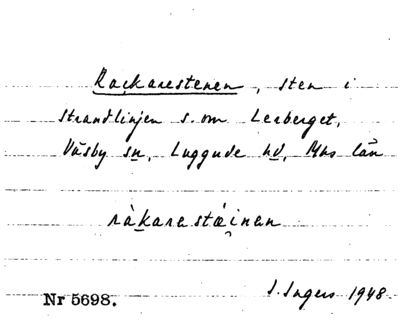 Rackarestenen, sten i
strandlinjen s. om Lerberget,
Väsby sn, Luggude hd, Mhs län
ràkarestäinen
I. Ingers 1948
Nr 5698.